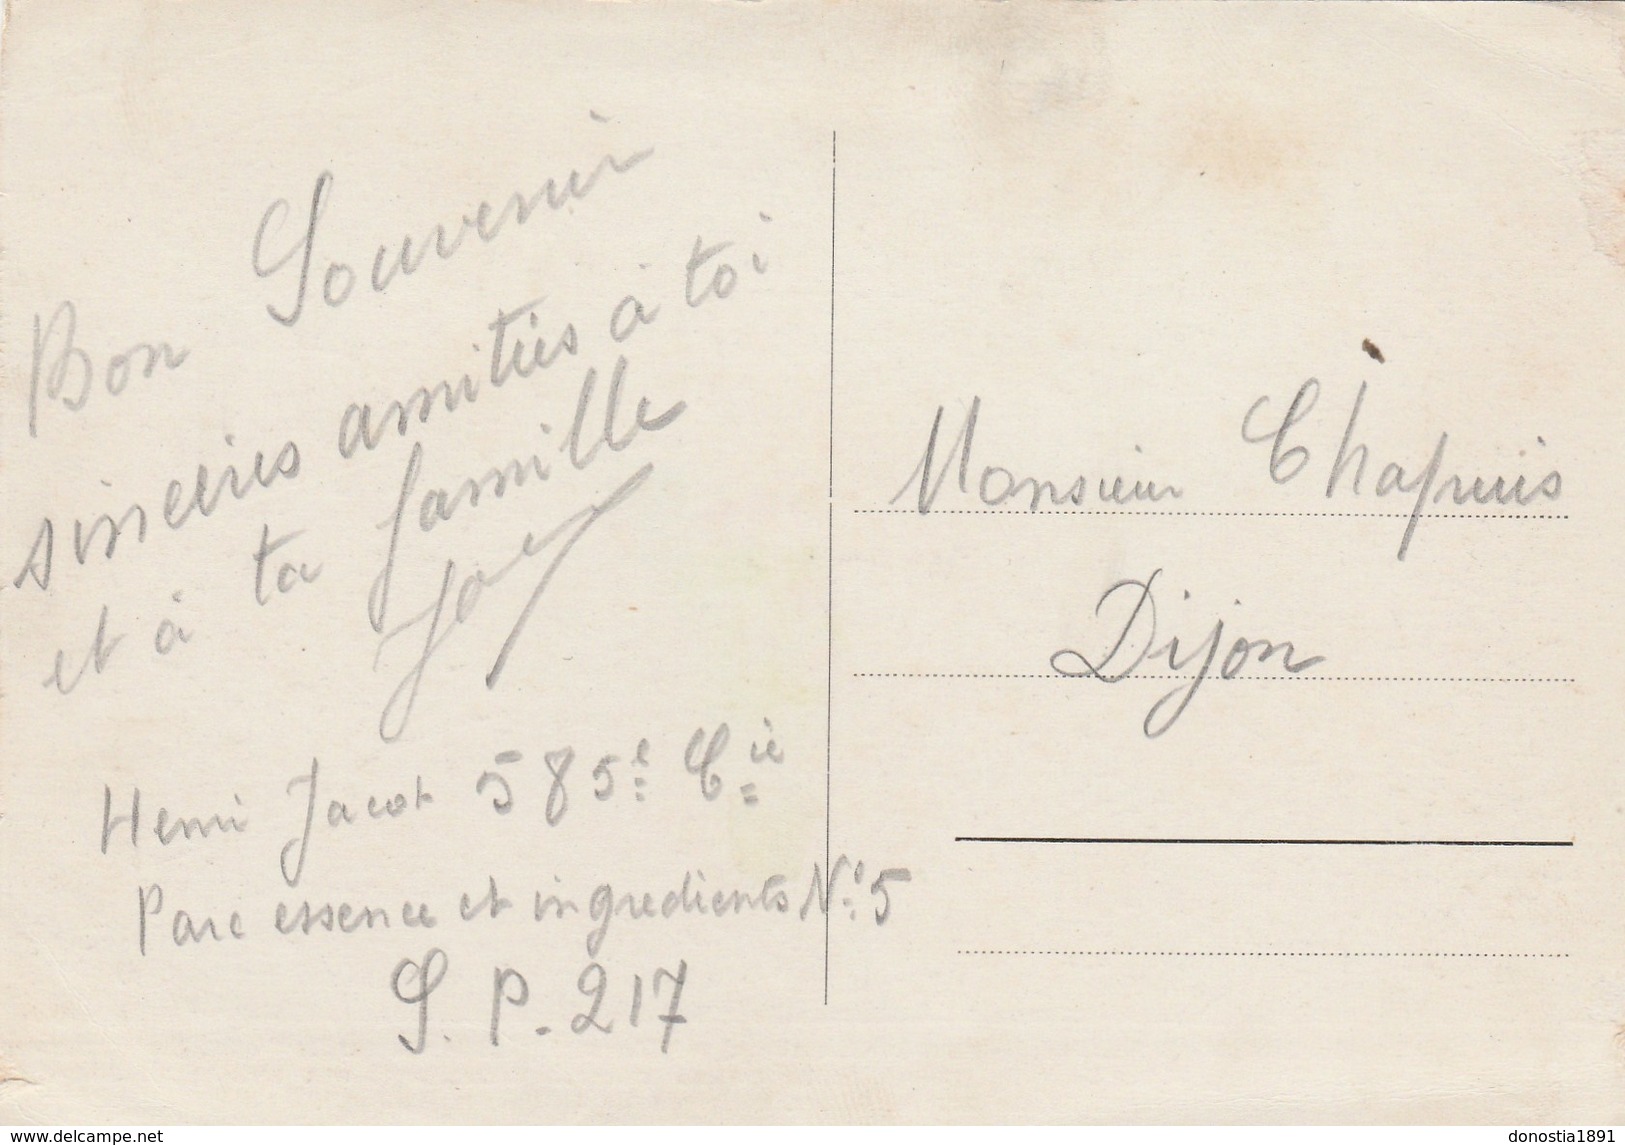 Bon Souvenir
sincères amitiés à toi
et à ta famille
Henri Jacot 585e Cie
Parc essence et ingredients N° 5
S. P. 217
Monsieur Chapuis
Dijon
www.delcampe.net
donostia1891